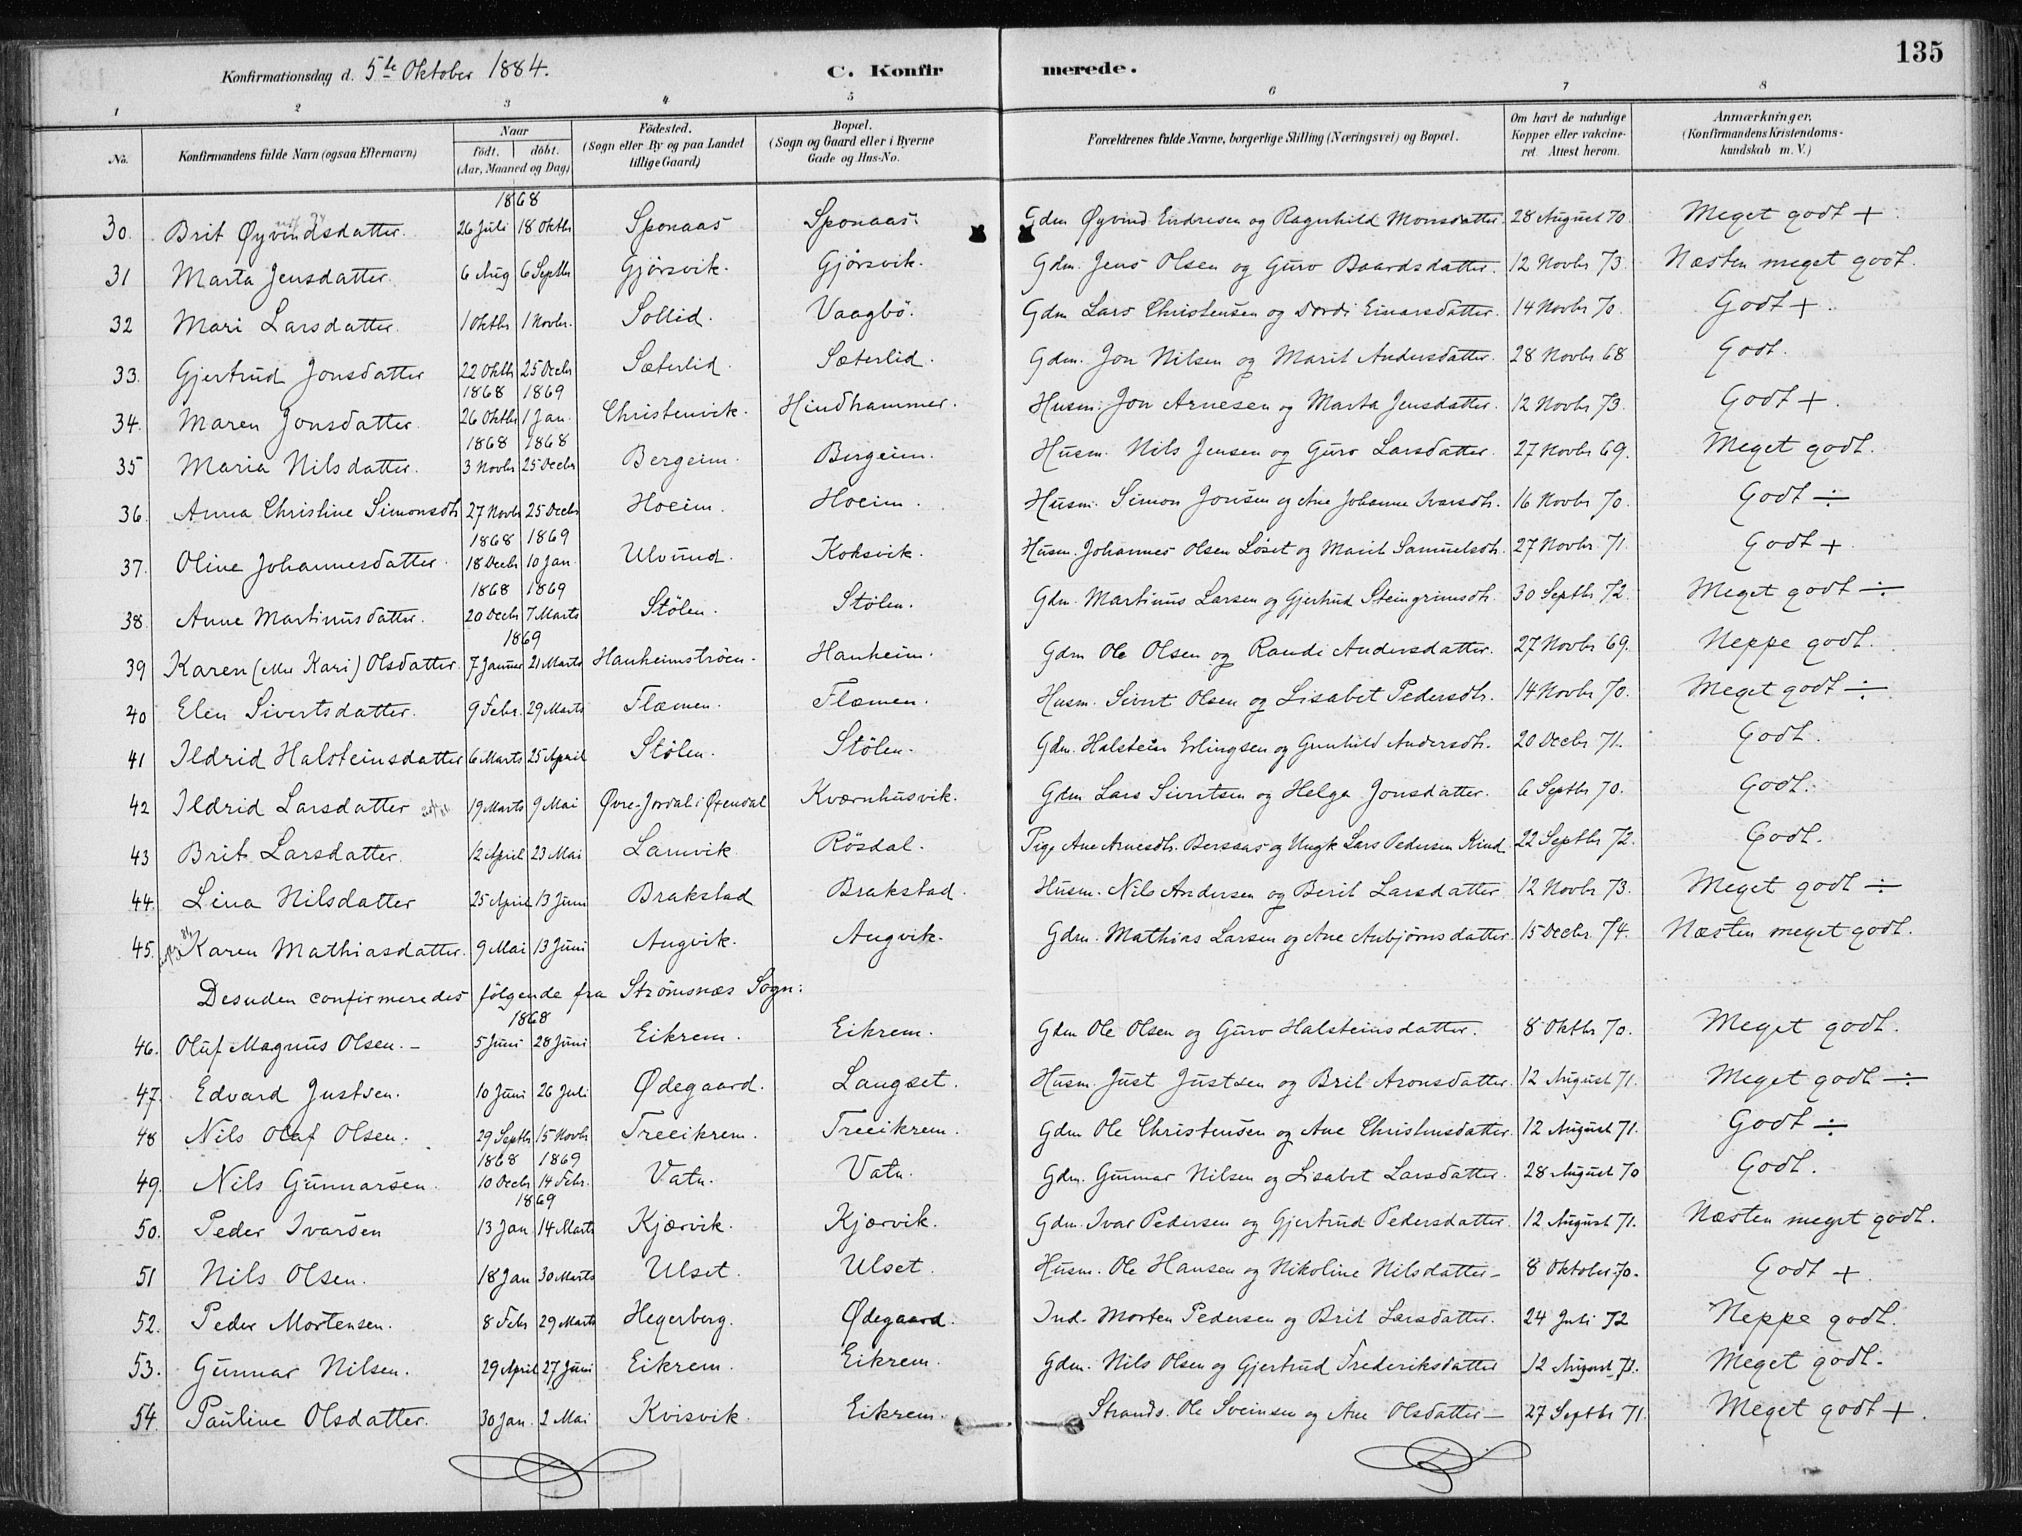 135
Konfirmationsdag d. 5te Oktober 1884. C. Konfirmerede.
1 2 3 4 5 6 7 8
No. Konfirmandens fulde Navn (ogsaa Efternavn) Naar födt. döbt. (Aar, Maaned og Dag) Födested. (Sogn eller By og paa Landet tillige Gaard) Bopæl. (Sogn og Gaard eller i Byerne Gade og Hus-No. Forældrenes fulde Navne, borgerlige Stilling (Næringsvei) og Bopæl. Om havt de naturlige Kopper eller vakcineret. Attest herom. Anmærkninger, (Konfirmandens Kristendomskundskab m. V.)
1868
30. Brit Øyvindsdatter. 26 Juli 18 Oktbr Sponaas Sponaas. Gdm Øyvind Endresen og Ragnhild Monsdatter. 28 August 70. Meget godt +
31 Marta Jensdatter. 6 Aug 6 Septbr Gjørsvik. Gjørsvik. Gdm. Jens Olsen og Guro Baardsdatter. 12 Novbr 73. Næsten meget godt.
32 Mari Larsdatter. 1 Oktbr 1 Novbr. Sollid. Vaagbö. Gdm Lars Christensen og Dordi Einarsdatter. 14 Novbr 70. Godt +.
33. Gjertrud Jonsdatter 22 Oktbr 25 Decbr Sæterlid. Sæterlid. Gdm. Jon Nilsen og Marit Andersdatter. 28 Novbr 68 Godt.
1868 1869
34. Maren Jonsdatter. 26 Oktbr 1 Jan. Christenvik. Hindhammer. Husm. Jon Arnesen og Marta Jensdatter. 12 Novbr 73. Godt +.
1868 1868
35 Maria Nilsdatter. 3 Novbr 25 Decbr Bergeim. Bergeim. Husm. Nils Jensen og Guro Larsdatter. 27 Novbr 69. Meget godt.
36. Anna Christine Simonsdtr 27 Novbr 25 Decbr Hoeim. Hoeim. Husm. Simon Jonsen og Ane Johanne Ivarsdtr. 16 Novbr 70. Godt ÷
1868 1869
37. Oline Johannesdatter. 18 Decbr 10 Jan. Ulvund. Koksvik. Husm. Johannes Olsen Løset og Marit Samuelsdtr. 27 Novbr 71. Godt +
1868 1869
38. Anne Martinusdatter. 20 Decbr 7 Marts Stölen. Stölen. Gdm. Martinus Larsen og Gjertrud Steingrimsdtr. 30 Septbr 72. Meget godt ÷
1869
39 Karen (eller Kari) Olsdatter. 7 Januar 21 Marts Hanheimströen. Hanheim. Gdm Ole Olsen og Randi Andersdatter. 27 Novbr 69. Neppe godt.
40 Elen Sivertsdatter. 9 Febr. 29 Marts Flæmen. Flæmen. Husm. Sivert Olsen og Lisabet Pedersdtr. 14 Novbr 70. Meget godt ÷
41 Ildrid Halsteinsdatter 6 Marts 25 April Stölen. Stölen. Gdm. Halstein Erlingsen og Gunhild Andersdtr. 20 Decbr 71. Godt.
42 Ildrid Larsdatter 19 Marts 9 Mai Øvre-Jordal i Øxendal Kværnhusvik. Gdm Lars Sivertsen og Helga Jonsdatter. 6 Septbr 70. Godt.
43 Brit Larsdatter. 12 April 23 Mai Lamvik Rösdal. Pige Ane Arnesdtr. Bersaas og Ungk Lars Pedersen Kind. 22 Septbr 72. Godt.
44. Lina Nilsdatter 25 April 13 Juni Brakstad Brakstad. Husm. Nils Andersen og Berit Larsdatter 12 Novbr 73. Meget godt ÷
45. Karen Mathiasdatter. 9 Mai 13 Juni Angvik. Angvik. Gdm. Mathias Larsen og Ane Anbjørnsdatter 15 Decbr 74. Næsten meget godt.
Desuden confirmeredes følgende fra Strömsnæs Sogn:
1868
46. Oluf Magnus Olsen. – 5 Juni 28 Juni Eikrem. Eikrem. Gdm Ole Olsen og Guro Halsteinsdatter. 8 Oktbr 70. Meget godt.
47. Edvard Justsen. 10 Juni 26 Juli Ødegaard. Langset. Husm. Just Justsen og Brit Aronsdatter. 12 August 71. Meget godt ÷
48 Nils Olaf Olsen. 29 Septbr 15 Novbr Treeikrem. Treeikrem. Gdm Ole Christensen og Ane Christensdatter 12 August 71. Godt ÷
1868 1869
49. Nils Gunnarsen. 10 Decbr 14 Febr. Vatn. Vatn. Gdm. Gunnar Nilsen og Lisabet Larsdatter. 28 August 70 Godt.
1869
50. Peder Ivarsen 13 Jan 14 Marts Kjærvik. Kjærvik. Gdm. Ivar Pedersen og Gjertrud Pedersdatter. 12 August 71. Næsten meget godt.
51 Nils Olsen. 18 Jan 30 Marts Ulset. Ulset. Husm. Ole Hansen og Nikoline Nilsdatter – 8 Oktober 70. Godt +
52. Peder Mortensen. 8 Febr 29 Marts Hegerberg. Ødegaard. Ind. Morten Pedersen og Brit Larsdatter. 24 Juli 72 Neppe godt.
53. Gunnar Nilsen. 29 April 27 Juni Eikrem. Eikrem. Gdm. Nils Olsen og Gjertrud Frederiksdatter 12 August 71. Meget godt.
54. Pauline Olsdatter. 30 Jan. 2 Mai Kvisvik. Eikrem. Strands. Ole Sveinsen og Ane Olsdatter – 27 Septbr 71. Meget godt +.